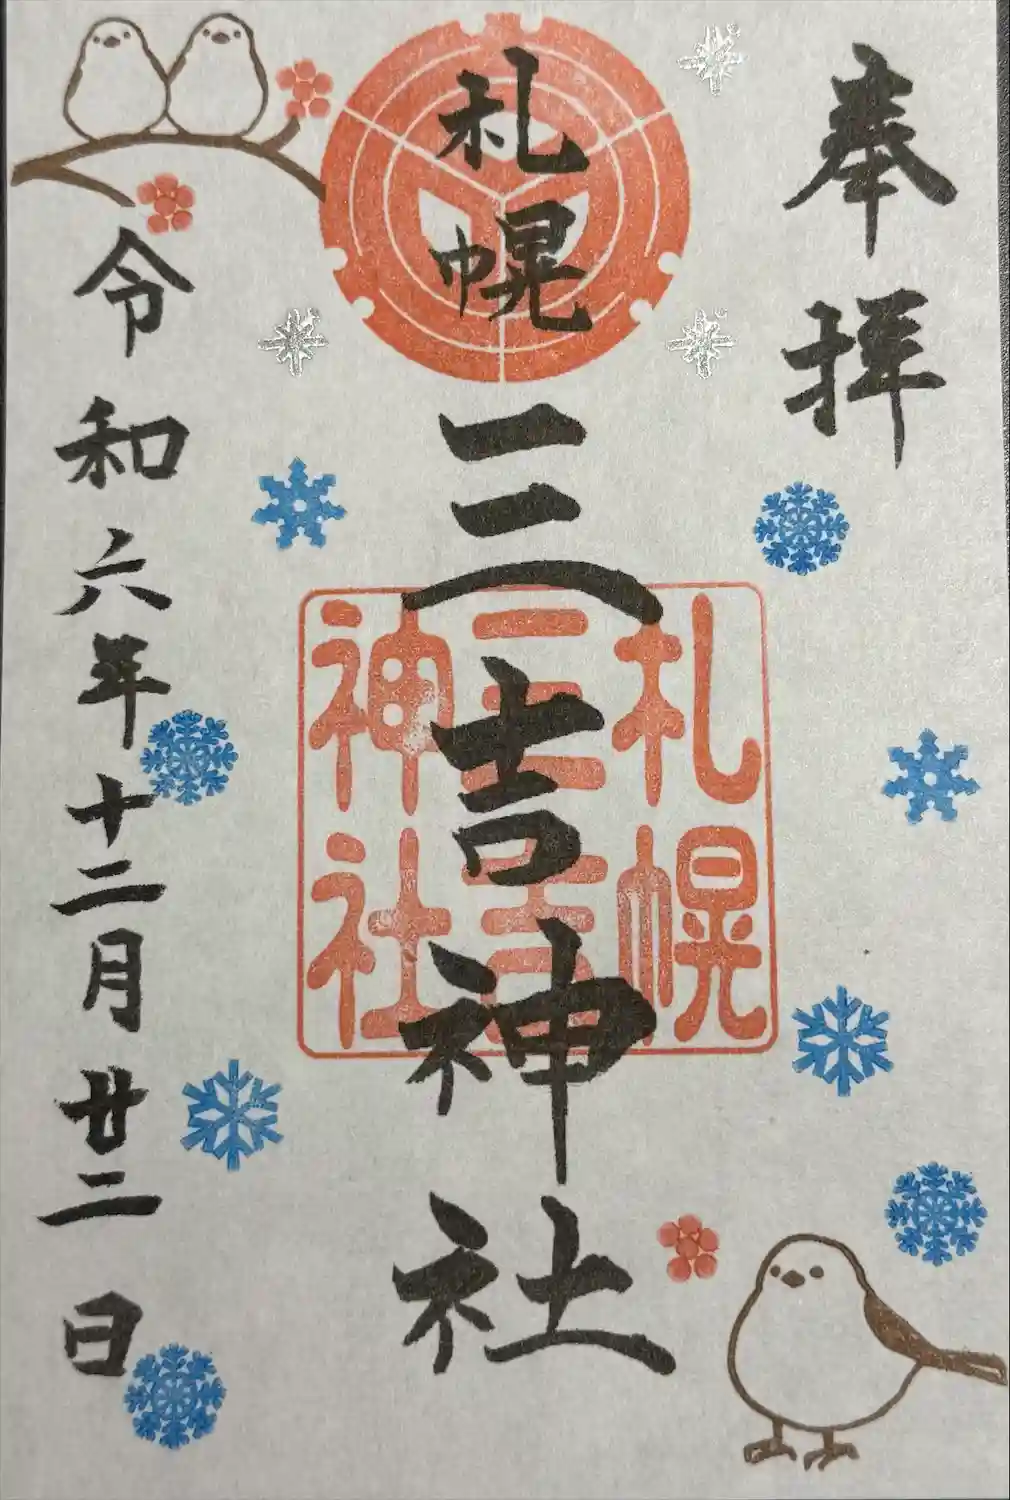 奉拝
札幌三吉神社
札幌
三吉
神社
令和六年十二月廿二日